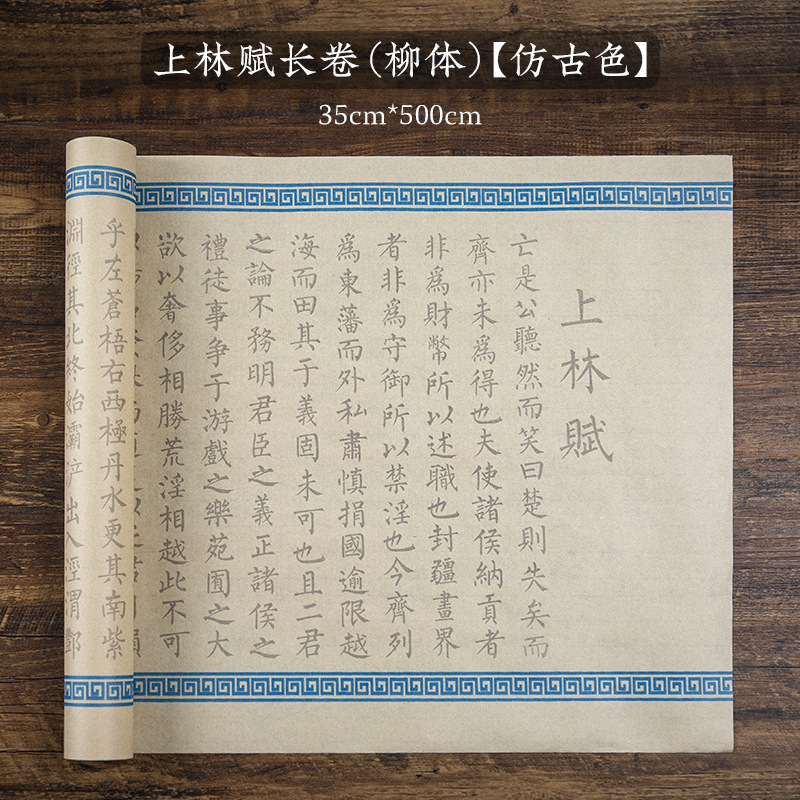 上林赋长卷(柳体)【仿古色】
35cm*500cm
上林賦
亡是公聽然而笑曰楚則失矣而
齊亦未為得也夫使諸侯納貢者
非為財幣所以述職也封疆畫界
者非為守御所以禁淫也今齊列
為東藩而外私肅慎捐國逾限越
海而田其于義固未可也且二君
之論不務明君臣之義正諸侯之
禮徒事爭于游戲之樂苑囿之大
欲以奢侈相勝荒淫相越此不可
乎左蒼梧右西極丹水更其南紫
淵徑其北終始灞浐出入涇渭酆